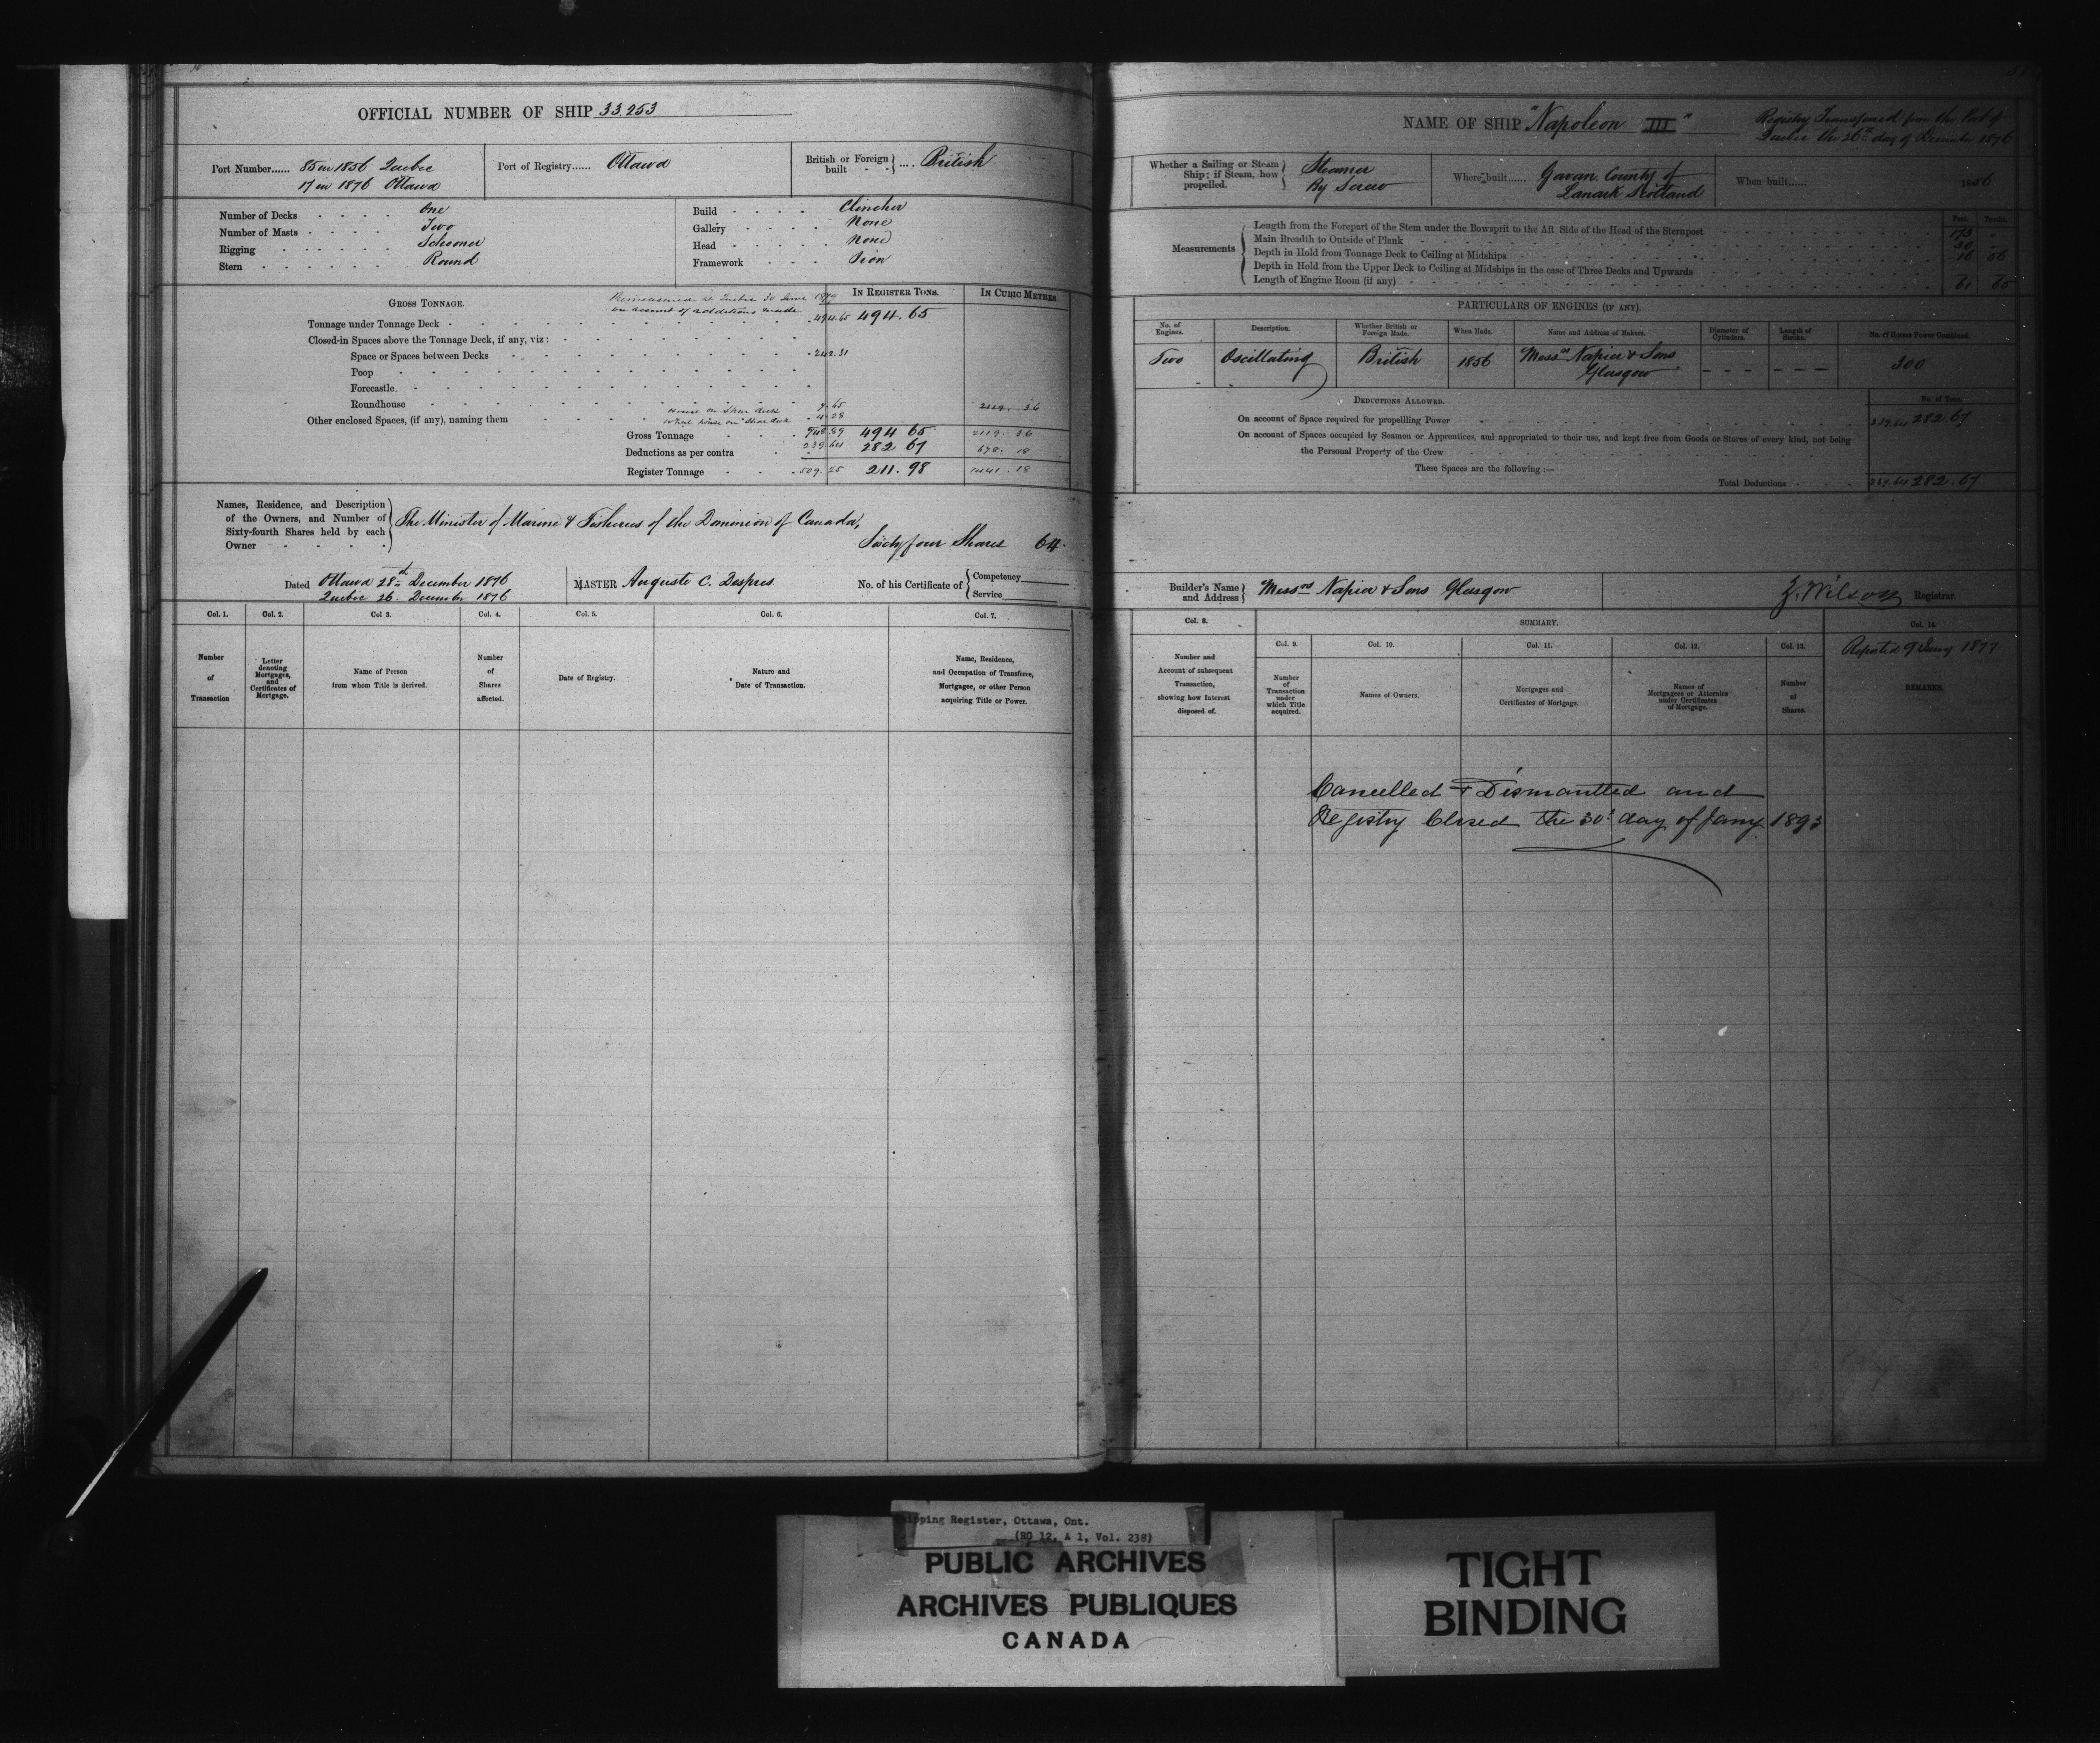 OFFICIAL NUMBER OF SHIP 33.253
Port Number...... 85 in 1856 Quebec
17 in 1876 Ottawa
Port of Registry...... Ottawa
British or Foreign built .... British
Number of Decks One
Number of Masts Two
Rigging Schooner
Stern Round
Build Clincher
Gallery None
Head None
Framework Iron
GROSS TONNAGE.
Remeasured at Quebec 30 June
on account of additions made
IN REGISTER TONS.
IN CUBIC METRES
Tonnage under Tonnage Deck 494.65 494.65
Closed-in Spaces above the Tonnage Deck, if any, viz:
Space or Spaces between Decks 242.31
Poop
Forecastle.
Roundhouse
Other enclosed Spaces, (if any), naming them
house on Spar deck 7.65
Wheel house on Spar deck 4.28
Gross Tonnage 748.89 494 65 2119. 36
Deductions as per contra 239.64 282 67 678. 18
Register Tonnage 509.25 211.98 1441.18
Names, Residence, and Description
of the Owners, and Number of
Sixty-fourth Shares held by each
Owner
The Minister of Marine & Fisheries of the Dominion of Canada,
Sixty four Shares 64.
Dated Ottawa 28th December 1876
Quebec 26. December 1876
MASTER Auguste C. Despres
No. of his Certificate of Competency
Service
Col. 1. Col. 2. Col 3. Col. 4. Col. 5. Col. 6. Col. 7.
Number of Transaction
Letter denoting Mortgages, and Certificates of Mortgage.
Name of Person from whom Title is derived.
Number of Shares affected.
Date of Registry.
Nature and Date of Transaction.
Name, Residence, and Occupation of Transferee, Mortgagee, or other Person acquiring Title or Power.
NAME OF SHIP "Napoleon III"
Registry Transfered from the Port of
Quebec the 26th day of December 1876
Whether a Sailing or Steam Ship; if Steam, how propelled. Steamer
By Screw
Where built...... Gavan County of
Lanark Scotland
When built...... 1856
Measurements
Feet. Tenths.
Length from the Forepart of the Stem under the Bowsprit to the Aft Side of the Head of the Sternpost 173 "
Main Breadth to Outside of Plank 30
Depth in Hold from Tonnage Deck to Ceiling at Midships 16 56
Depth in Hold from the Upper Deck to Ceiling at Midships in the case of Three Decks and Upwards
Length of Engine Room (if any) 61 65
PARTICULARS OF ENGINES (IF ANY).
No. of Engines. Description. Whether British or Foreign Made. When Made. Name and Address of Makers. Diameter of Cylinders. Length of Stroke. No. of Horses Power Combined.
Two Oscillating British 1856 Messrs Napier & Sons
Glasgow - - - - - - 300
DEDUCTIONS ALLOWED.
No. of Tons.
On account of Space required for propelling Power 239.64 282.67
On account of Spaces occupied by Seamen or Apprentices, and appropriated to their use, and kept free from Goods or Stores of every kind, not being
the Personal Property of the Crew
These Spaces are the following:—
Total Deductions 239.64 282.67
Builder's Name and Address Messrs Napier & Sons Glasgow
Z. Wilson Registrar.
Col. 8.
SUMMARY.
Col. 14.
Col. 9. Col. 10. Col. 11. Col. 12. Col. 13.
Reported 9 Jany 1877
Number and Account of subsequent Transaction, showing how Interest disposed of.
Number of Transaction under which Title acquired.
Names of Owners.
Mortgages and Certificates of Mortgage.
Names of Mortgagees or Attornies under Certificates of Mortgage.
Number of Shares.
REMARKS.
Cancelled & Dismantled and
Registry Closed the 30th day of Jany 1893
Shipping Register, Ottawa, Ont.
(RG 12, A 1, Vol. 238)
PUBLIC ARCHIVES
ARCHIVES PUBLIQUES
CANADA
TIGHT
BINDING